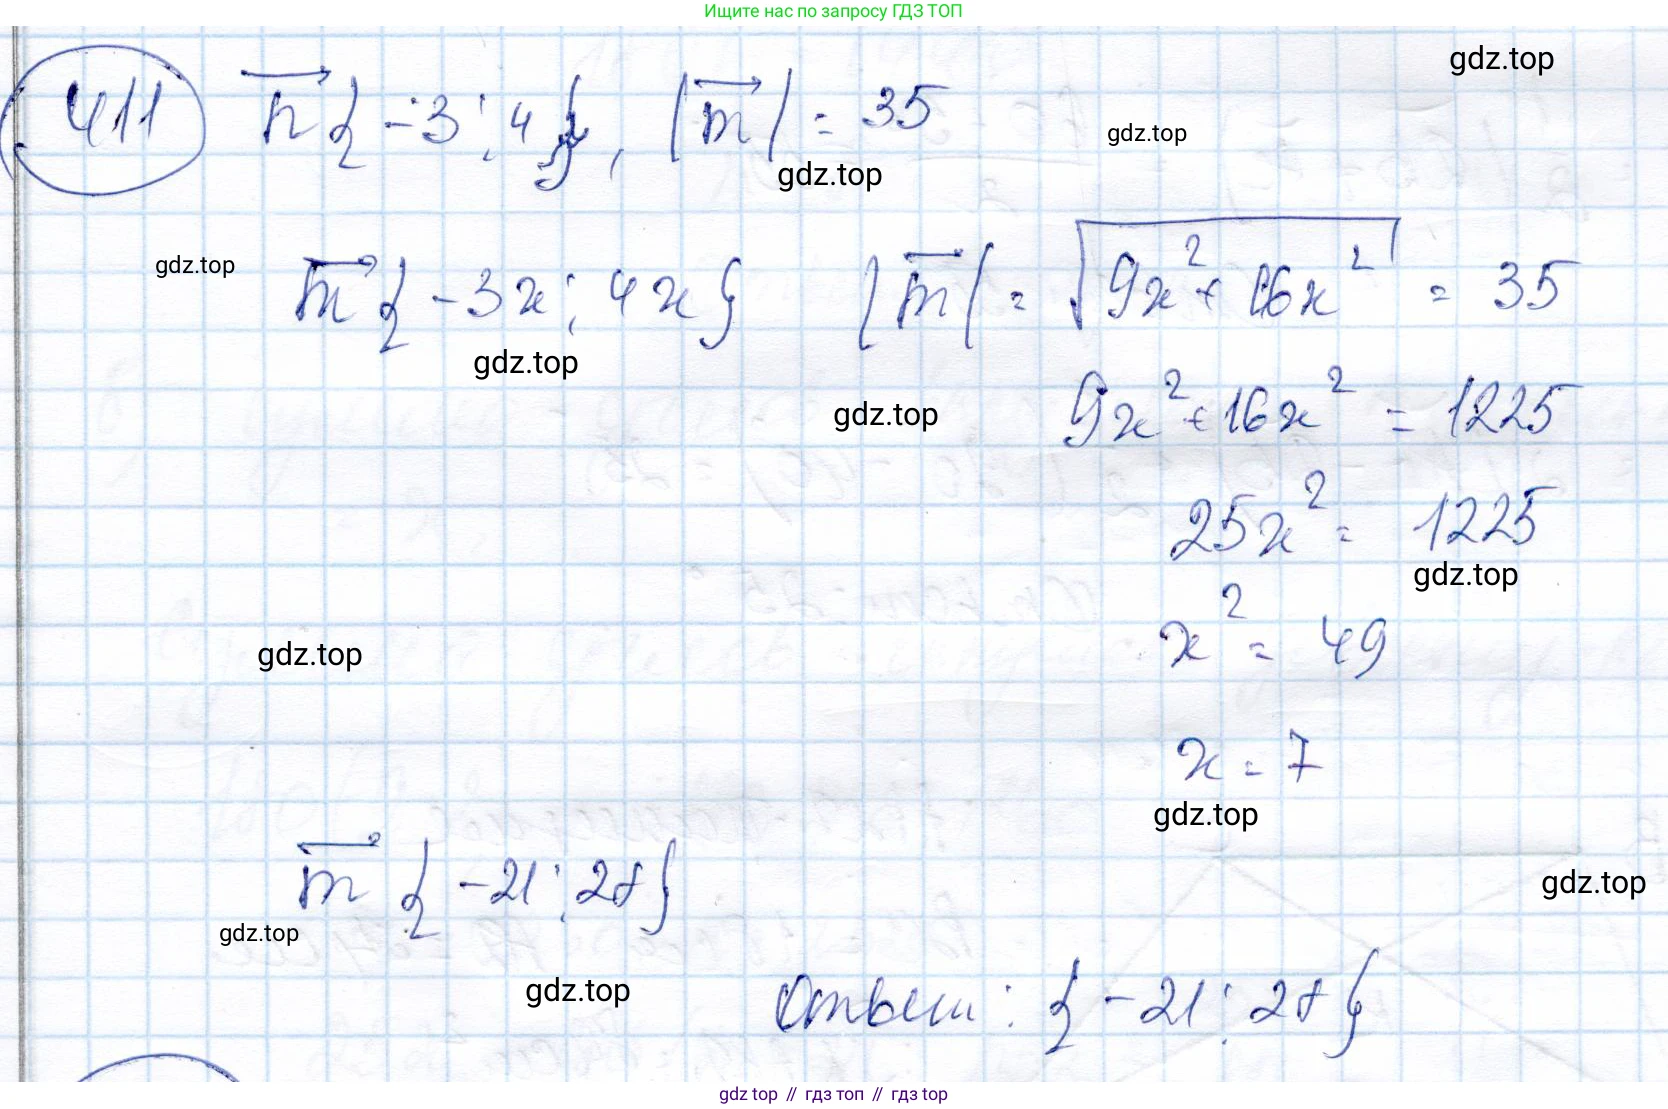 Ищите нас по запросу ГДЗ ТОП
gdz.top
411 n{-3; 4}, |m| = 35
gdz.top
gdz.top
gdz.top
m{-3x; 4x} |m| = √9x²+16x² = 35
gdz.top
9x²+16x² = 1225
gdz.top
25x² = 1225
gdz.top
x² = 49
gdz.top
x = 7
gdz.top
m{-21; 28}
gdz.top
gdz.top
gdz.top
Ответ: {-21; 28}
gdz.top // гдз топ // гдз top